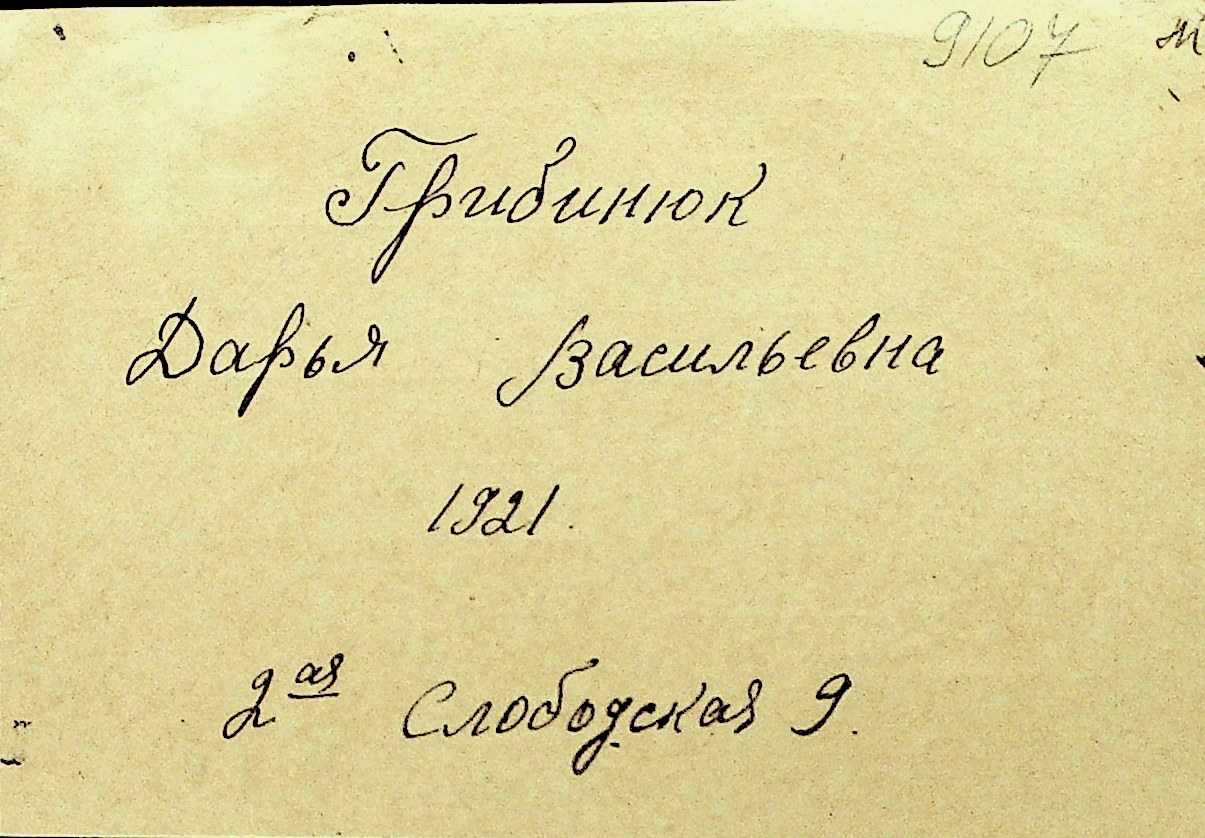 9107 м
Грибинюк
Дарья Васильевна
1921.
2ая Слободская 9.